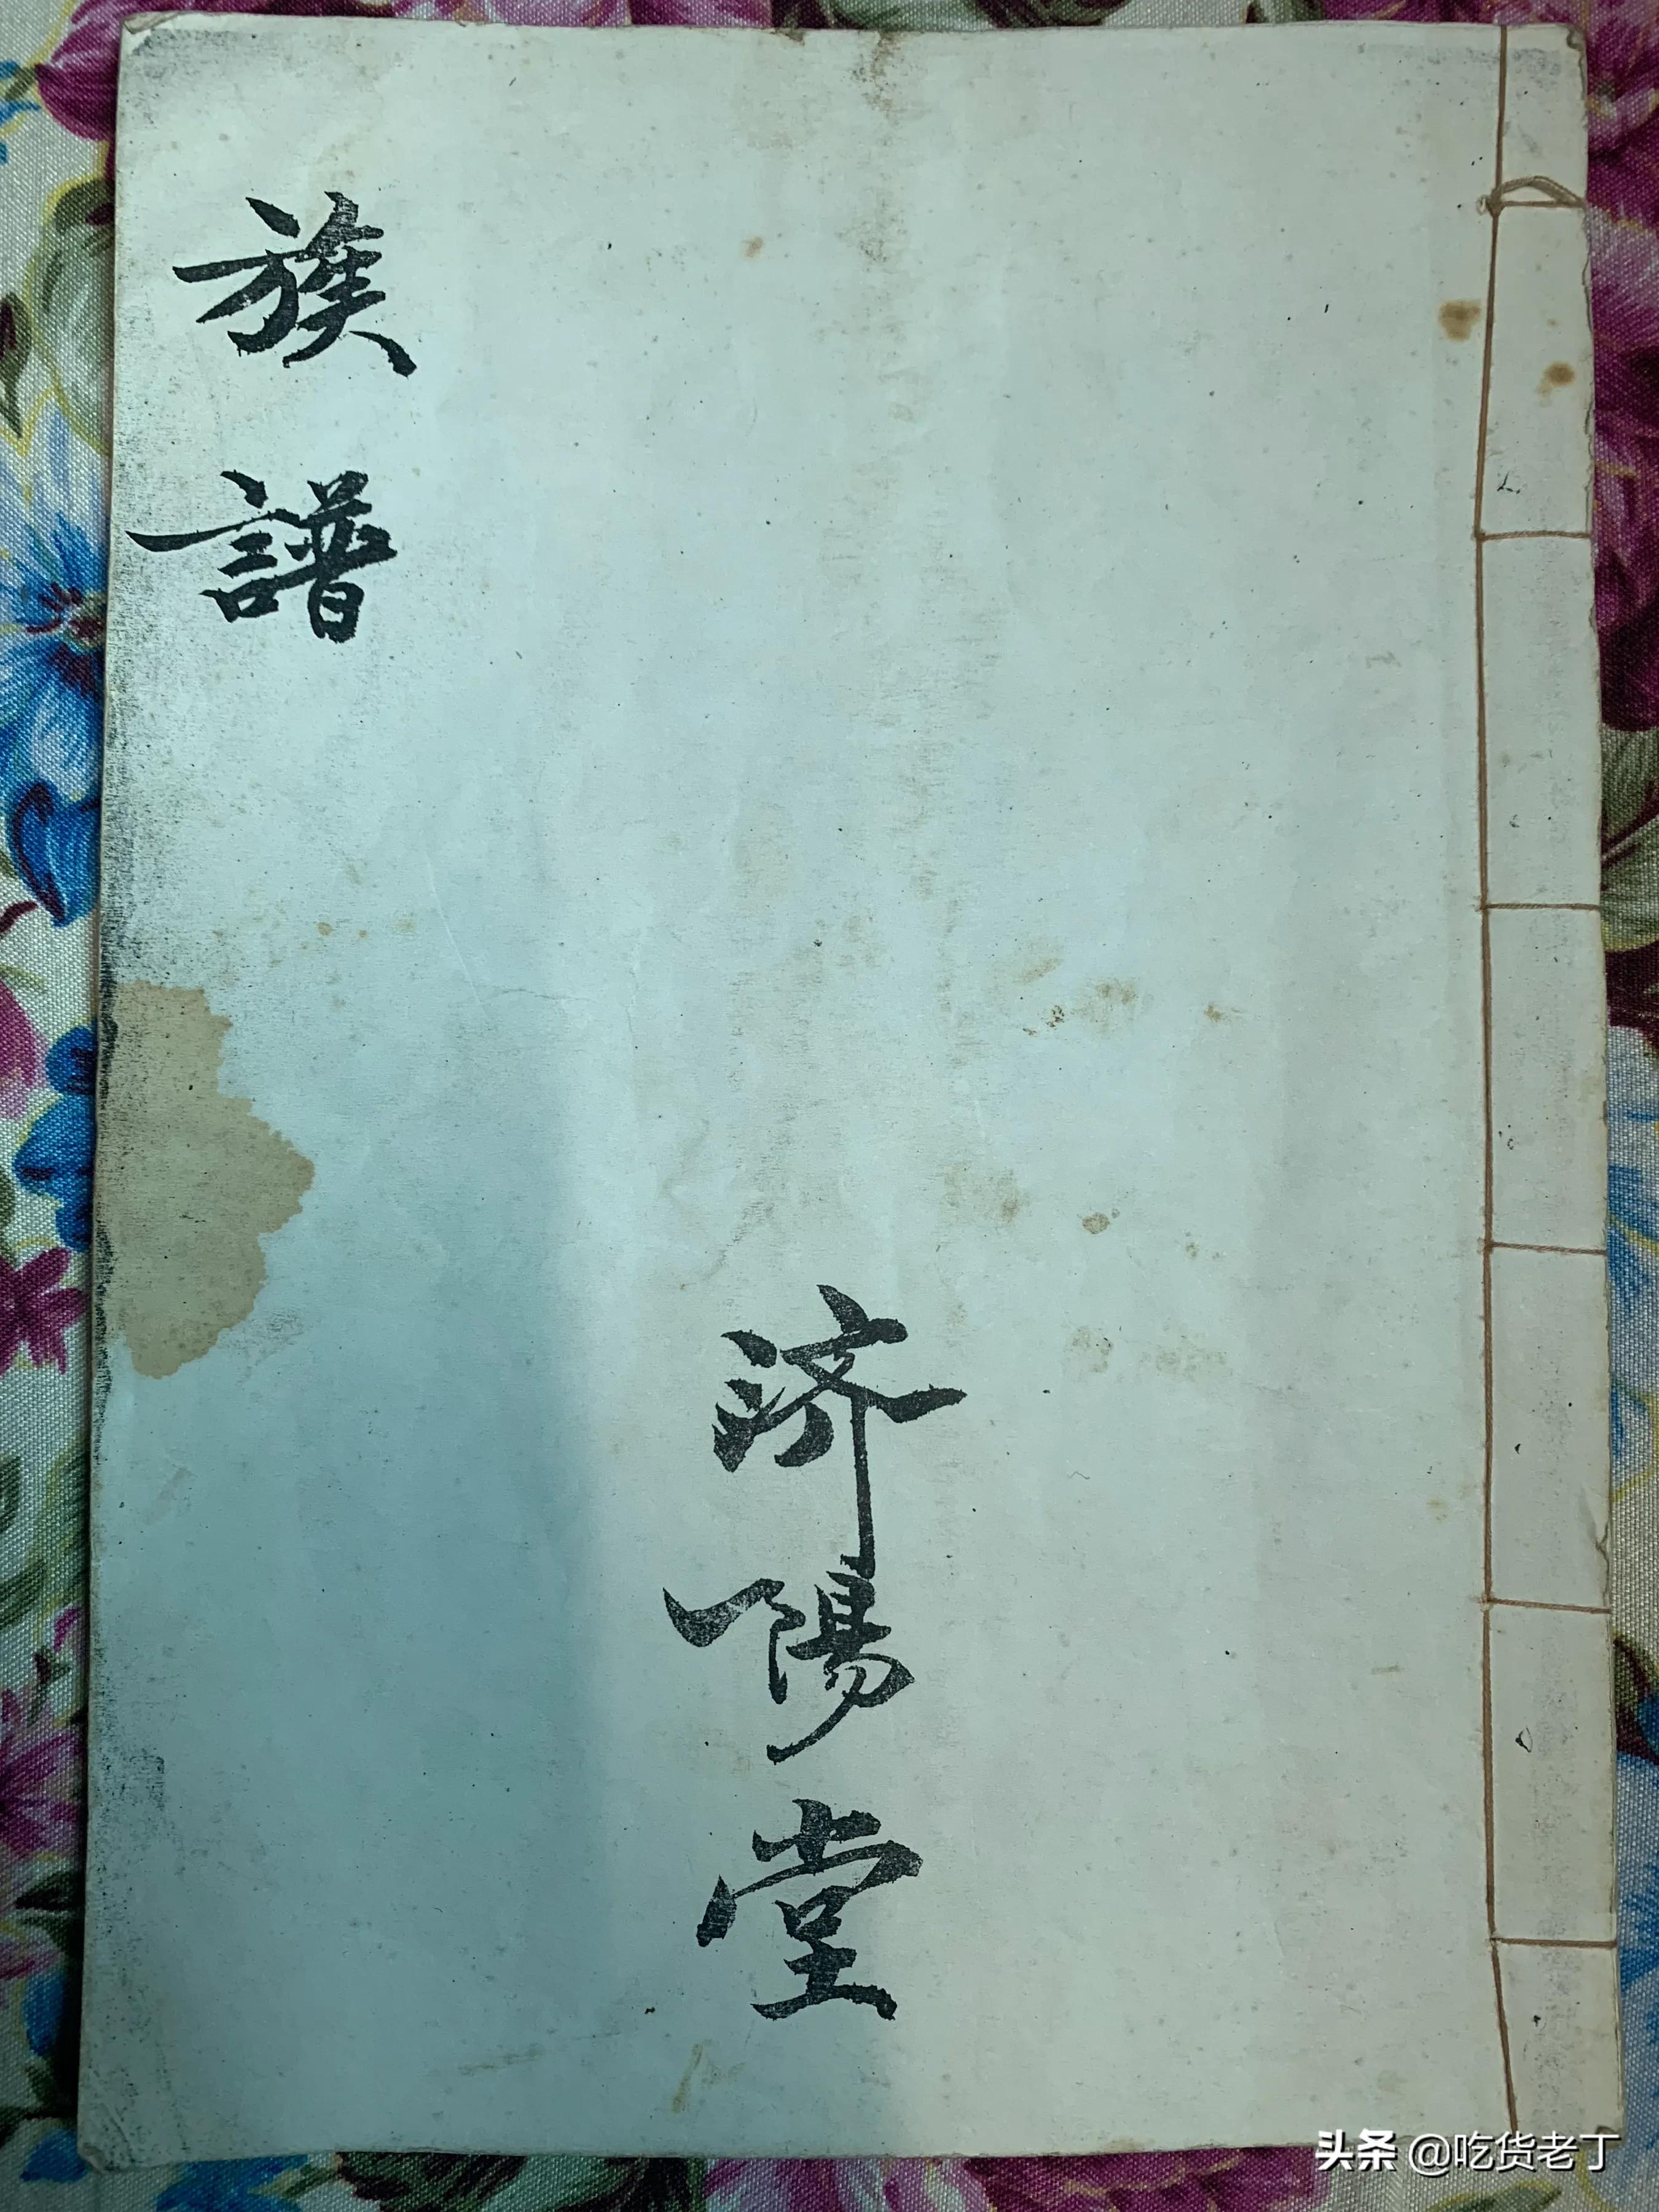 族譜
济陽堂
头条 @吃货老丁